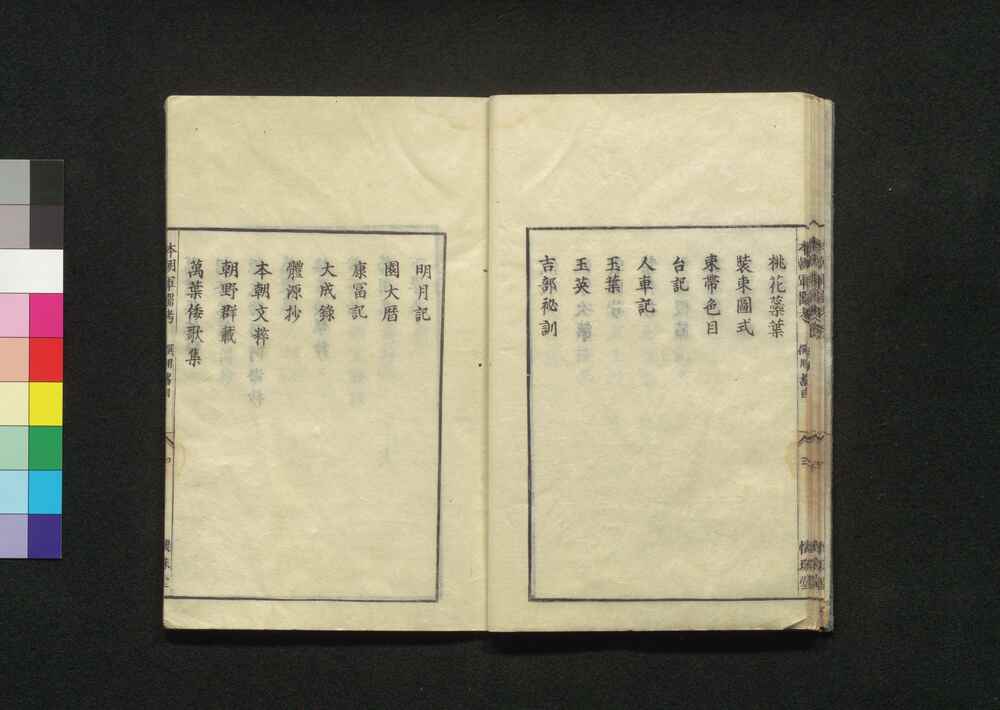 桃花蘂葉
裝束圖式
束帶色目
台記
人車記
玉葉
玉英
吉部祕訓
明月記
園大曆
康冨記
大成錄
體源抄
本朝文粹
朝野群載
萬葉倭歌集
本朝軍器考